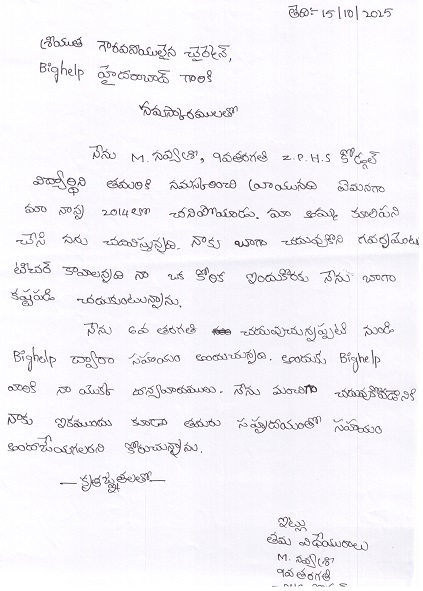 తేది:- 15/10/2025
శ్రీయుత గౌరవనీయులైన చైర్మెన్,
Bighelp హైదరాబాద్ గారికి
నమస్కారములతో
నేను M. నవ్యశ్రీ, 9వతరగతి Z.P.H.S కోర్పోల్
విద్యార్థిని తమరికి నమస్కరించి వ్రాయునది ఏమనగా
మా నాన్న 2014లో చనిపోయాడు. మా అమ్మ కూలిపని
చేసి నను చదివిస్తున్నది. నాకు బాగా చదువుకొని గవర్నమెంట్
టీచర్ కావాలన్నది నా ఒక కోరిక ఇందుకొరకు నేను బాగా
కష్టపడి చదుకుంటున్నాను.
నేను 6వ తరగతి చదువుచున్నప్పటి నుండి
Bighelp ద్వారా సహాయం అందుచున్నది. అందుకు Bighelp
వారికి నా యొక్క ధన్యవాదములు. నేను మంచిగా చదువుకోవడానికి
నాకు ఇకముందు కూడా తమరు సహృదయంతో సహాయం
అందచేయగలరని కోరుచున్నాను.
—కృతజ్ఞతలతో—
ఇట్లు
తమ విధేయురాలు
M. నవ్యశ్రీ
9వ తరగతి